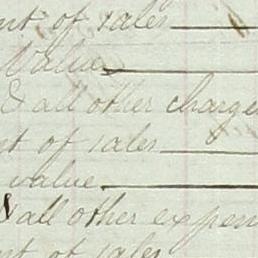 nt of sales
Value
& all other charges
nt of sales
value
& all other expen
nt of sales